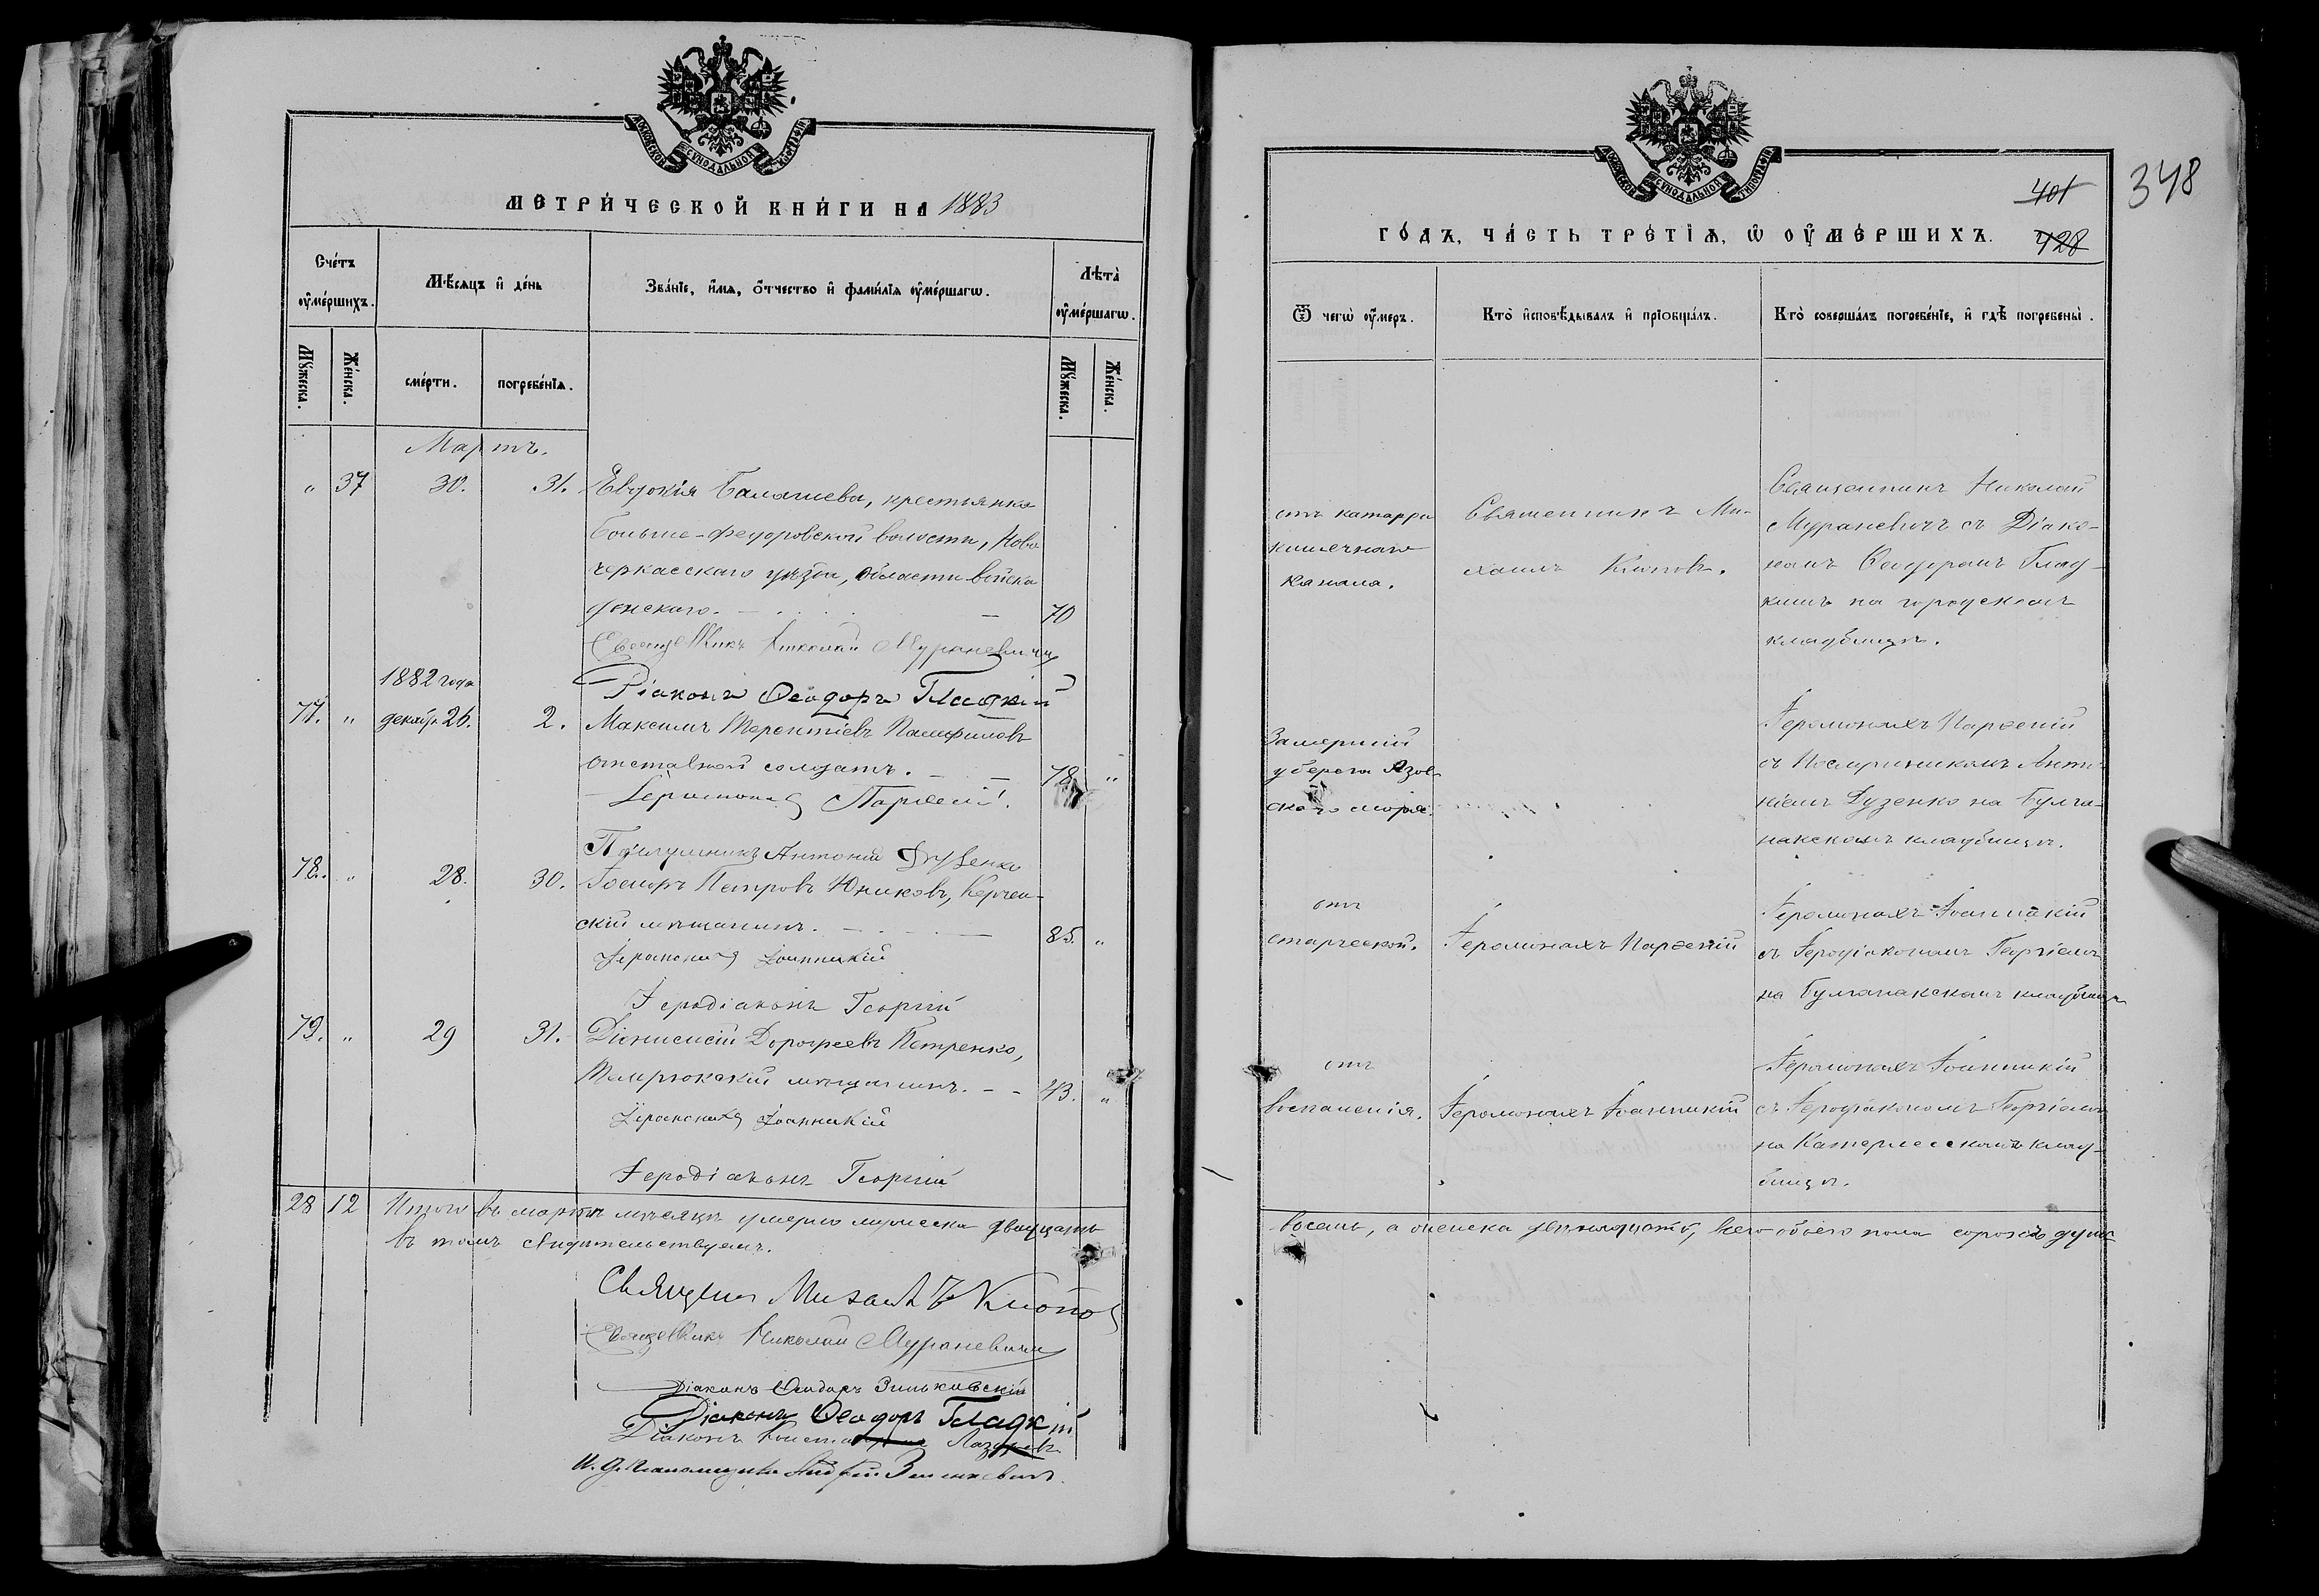 МОСКОВСКОЙ СУНОДАЛЬНОЙ ТИПОГРАФІИ
МЕТРИЧЕСКОЙ КНИГИ НА 1883
Счетъ оумершихъ.
Мѣсяцъ и день
Званіе, имя, отчество и фамилія оумершагѡ.
Лѣта оумершагѡ.
Мужеска.
Женска.
смерти.
погребенія.
Мужеска.
Женска.
Мартъ.
" 37 30. 31. Евдокія Балашева, крестьянка
Больше-Федоровской волости, Ново
черкасскаго уѣзда, области войска
донскаго. 70
Священникъ Николай Мураневичъ
Діаконъ Ѳеодоръ Гладкій
1882 года
77. " декабр. 26. 2. Максимъ Терентіевъ Памфиловъ
отставной солдатъ. 78 "
Іеромонахъ Парѳеній.
Послушникъ Антоній Дузенко
78. " 28. 30. Іосифъ Петровъ Юниковъ, Керчен-
скій мѣщанинъ. 85. "
Іеромонахъ Іоанникій
Іеродіаконъ Георгій
79. " 29 31. Діонисій Дорофеевъ Петренко,
Темрюкскій мѣщанинъ. 43. "
Іеромонахъ Іоанникій
Іеродіаконъ Георгій
28 12 Итого въ мартѣ мѣсяцѣ умерло мужеска двадцать
въ томъ свидѣтельствуемъ.
Священ Михаилъ Клопов
Священникъ Николай Мураневичъ
Діаконъ Ѳеодоръ Зиньковскій
Діаконъ Ѳеодоръ Гладкій
Діаконъ Лазаревъ
И. д. Псаломщика Андрей
МОСКОВСКОЙ СУНОДАЛЬНОЙ ТИПОГРАФІИ
401
348
ГОДЪ, ЧАСТЬ ТРЕТІЯ, Ѡ ОУМЕРШИХЪ.
428
Ѿ чегѡ оумеръ.
Кто исповѣдывалъ и пріобщалъ.
Кто совершалъ погребеніе, и гдѣ погребены.
отъ катарра
кишечнаго
канала.
Священникъ Ми-
хаилъ Клопов.
Священникъ Николай
Мураневичъ съ Діако-
номъ Ѳеодоромъ Глад-
кимъ на городскомъ
кладбищѣ.
Замерзшій
у берега Азов
скаго моря.
Іеромонахъ Парѳеній
съ Послушникомъ Анто
ніемъ Дузенко на Булга-
накскомъ кладбищѣ.
отъ
старческой.
Іеромонахъ Парѳеній
Іеромонахъ Іоанникій
съ Іеродіакономъ Георгіемъ
на Булганакскомъ кладбищѣ
отъ
воспаленія.
Іеромонахъ Іоанникій
Іеромонахъ Іоанникій
съ Іеродіакономъ Георгіемъ
на Катерлесскомъ клад-
бищѣ.
восемь, а женска двѣнадцать, всего обоего пола сорокъ душъ